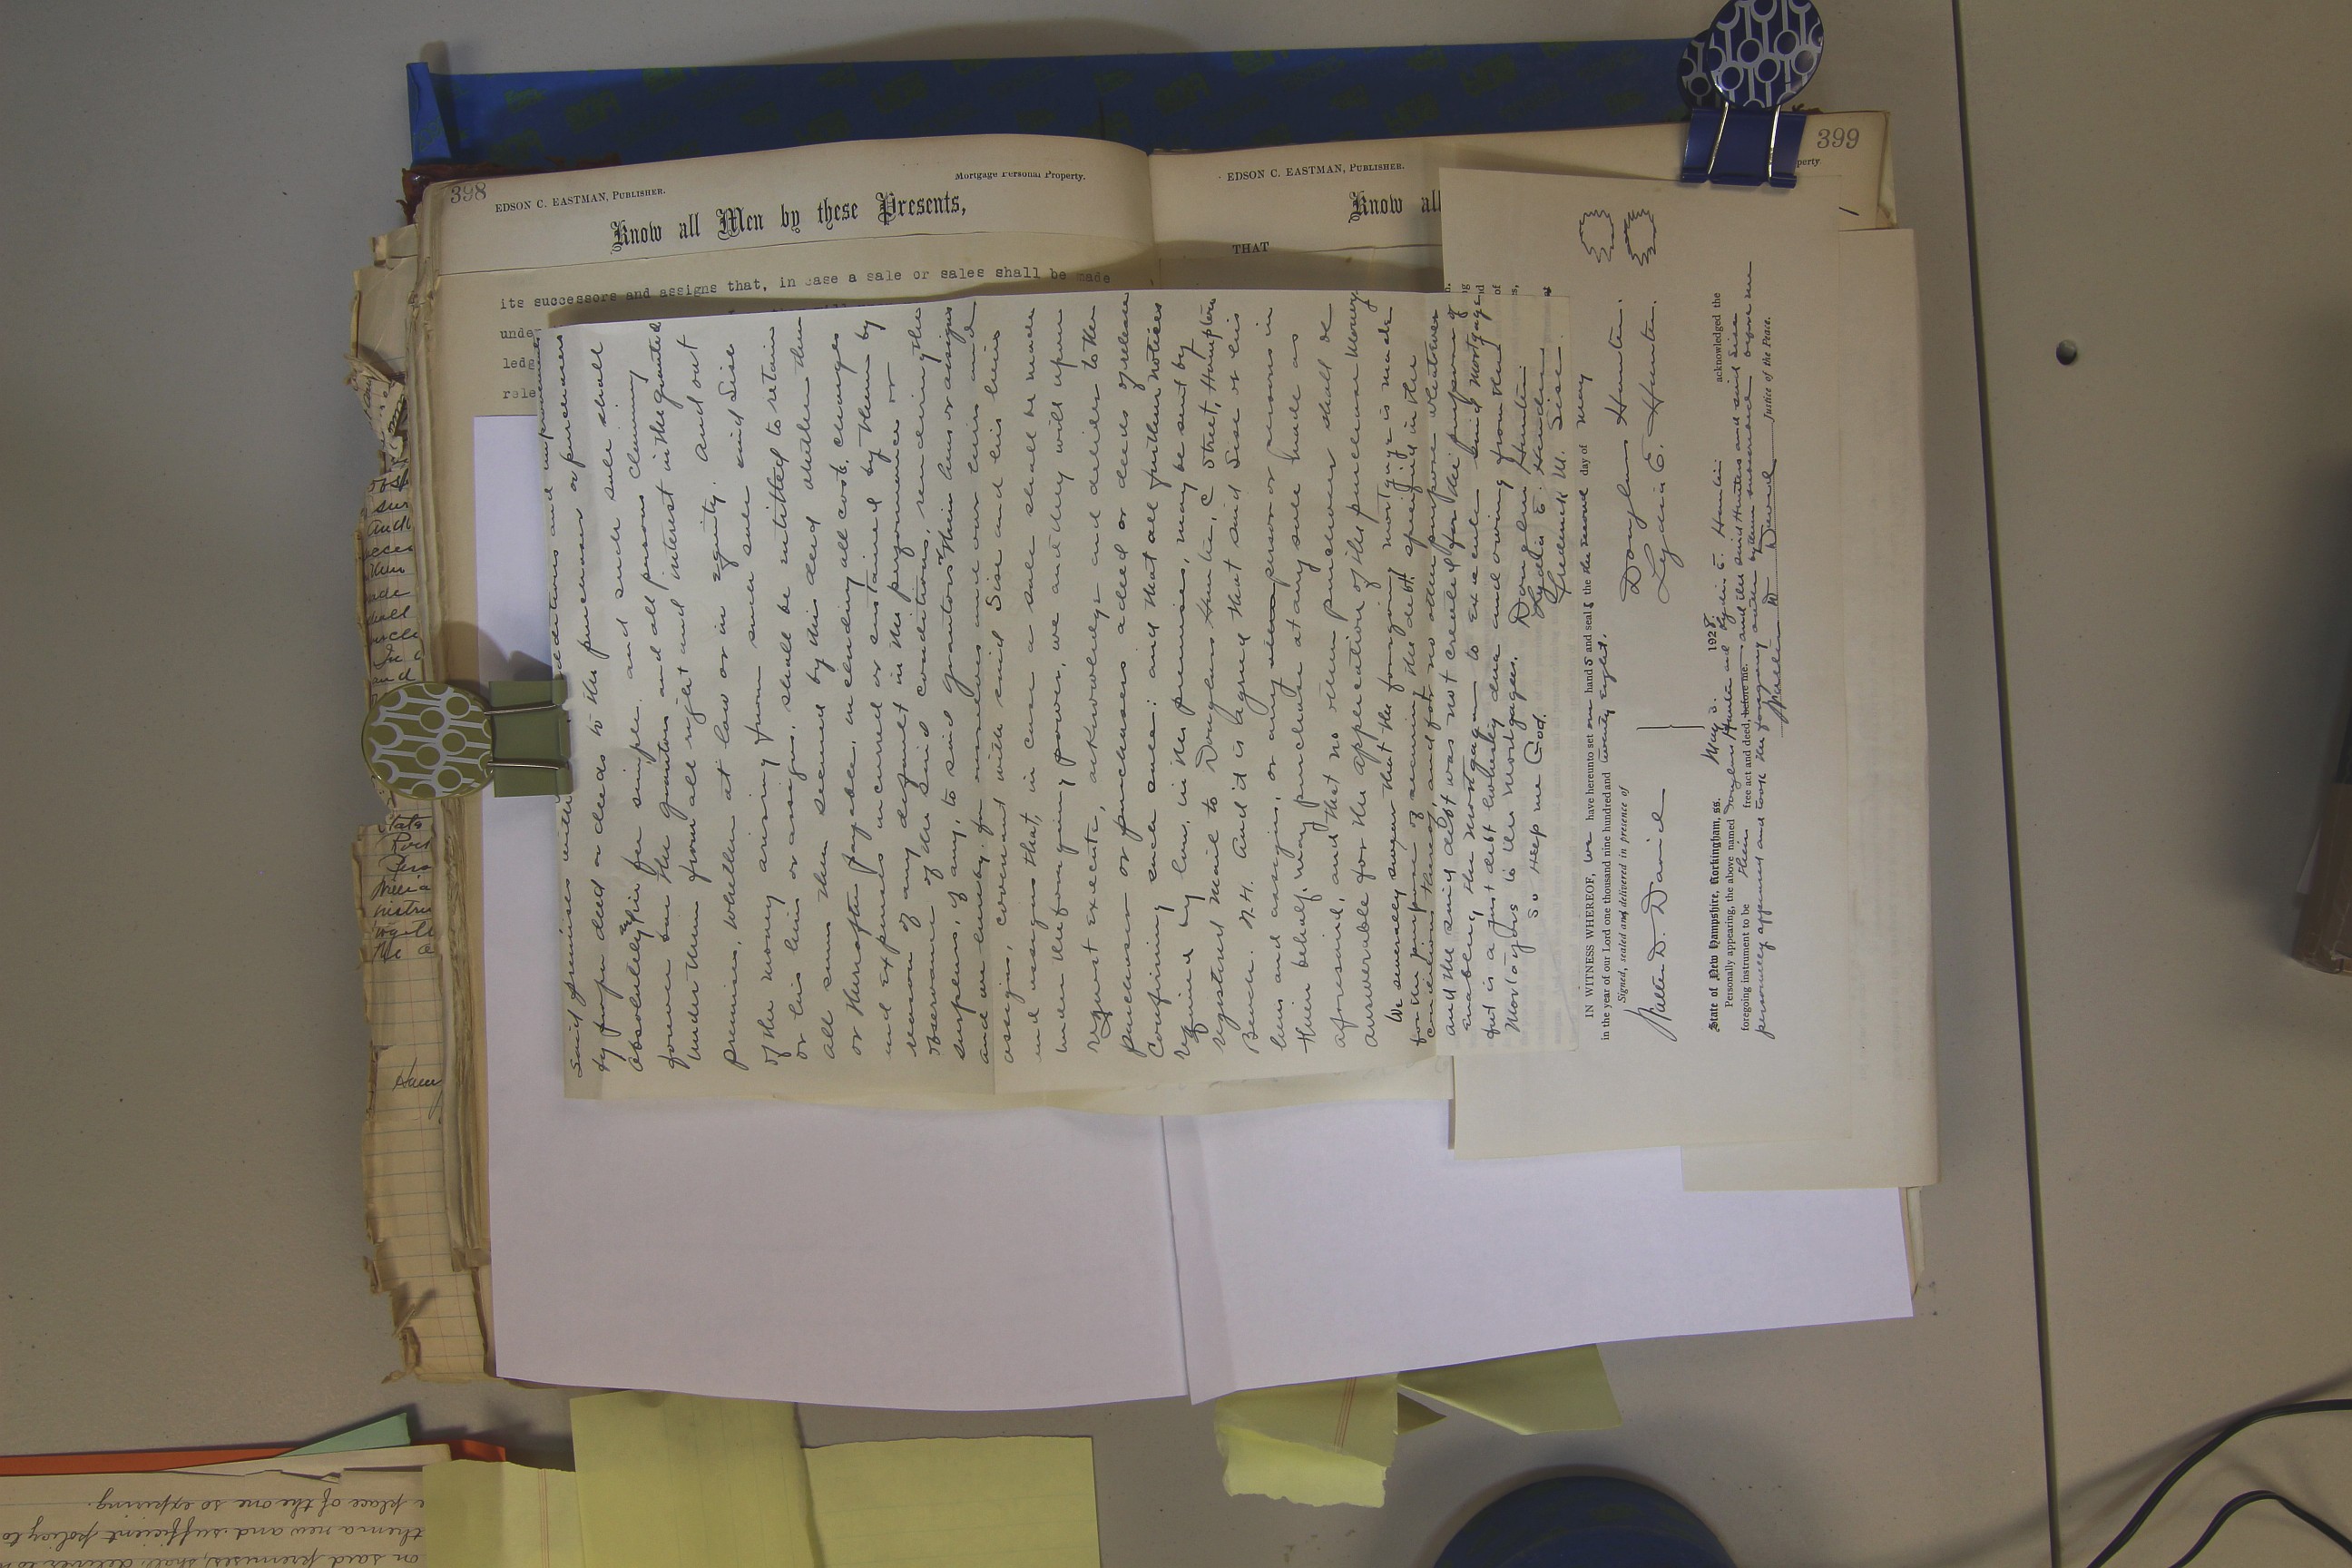 398
EDSON C. EASTMAN, PUBLISHER.
Mortgage Personal Property.
Know all Men by these Presents,
its successors and assigns that, in case a sale or sales shall be made
under
ledg
rele
EDSON C. EASTMAN, PUBLISHER.
399
perty
Know all
THAT
said premises with additions and improvements
by proper deed or deeds to the purchaser or purchasers
absolutely in fee simple. and such sale shall
forever bar the grantors and all persons claiming
under them from all right and interest in the granted
premises, whether at law or in equity. And out
of the money arising from such sale said Sise
or his heirs or assigns, shall be entitled to retain
all sums then secured by this deed whether then
or thereafter payable, including all costs, charges
and expenses incurred or sustained by them by
reason of any default in the performance or
observance of the said conditions, rendering the
surplus, if any, to said grantors or their heirs or assigns
and we hereby for ourselves and our heirs and
assigns, covenant with said Sise and his heirs
and assigns that, in case a sale shall be made
under the foregoing power, we and they will upon
request execute, acknowledge and deliver to the
purchaser or purchasers a deed or deeds of release
confirming such sale: and that all further notices
required by law, in the premises, may be sent by
registered mail to Douglass Hunter, C Street, Hampton
Beach. N.H. And it is agreed that said Sise or his
heirs and assigns, or any person or persons in
their behalf, may purchase at any sale made as
aforesaid, and that no other purchaser shall be
answerable for the application of the purchase money.
We severally swear that the foregoing mortgage is made
for the purpose of securing the debt specified in the
condition thereof, and for no other purpose whatever
and the said debt was not created for the purpose of
enabling the mortgagor to execute said mortgage
but is a just debt honestly due and owing from the
Mortagors to the mortgagee. Douglass Hunter.
So help me God. Lydia E. Hunter
Frederick M. Sise.
IN WITNESS WHEREOF, we have hereunto set our hands and seals the second day of May
in the year of our Lord one thousand nine hundred and twenty eight.
Signed, sealed and delivered in presence of
Walter D. David
Douglass Hunter.
Lydia E. Hunter.
State of New Hampshire, Rockingham, ss. May 2. 1928.
Personally appearing, the above named Douglass Hunter and Lydia E. Hunter acknowledged the
foregoing instrument to be their free act and deed, before me. and the said Hunters and said Sise
personally appeared and took the foregoing oath by them subscribed before me
Justice of the Peace.
sur
ade
shall
In
and
State
instru
the
Ham
e place of the one so expiring.
then a new and sufficient policy to
on said premises, shall deliver to